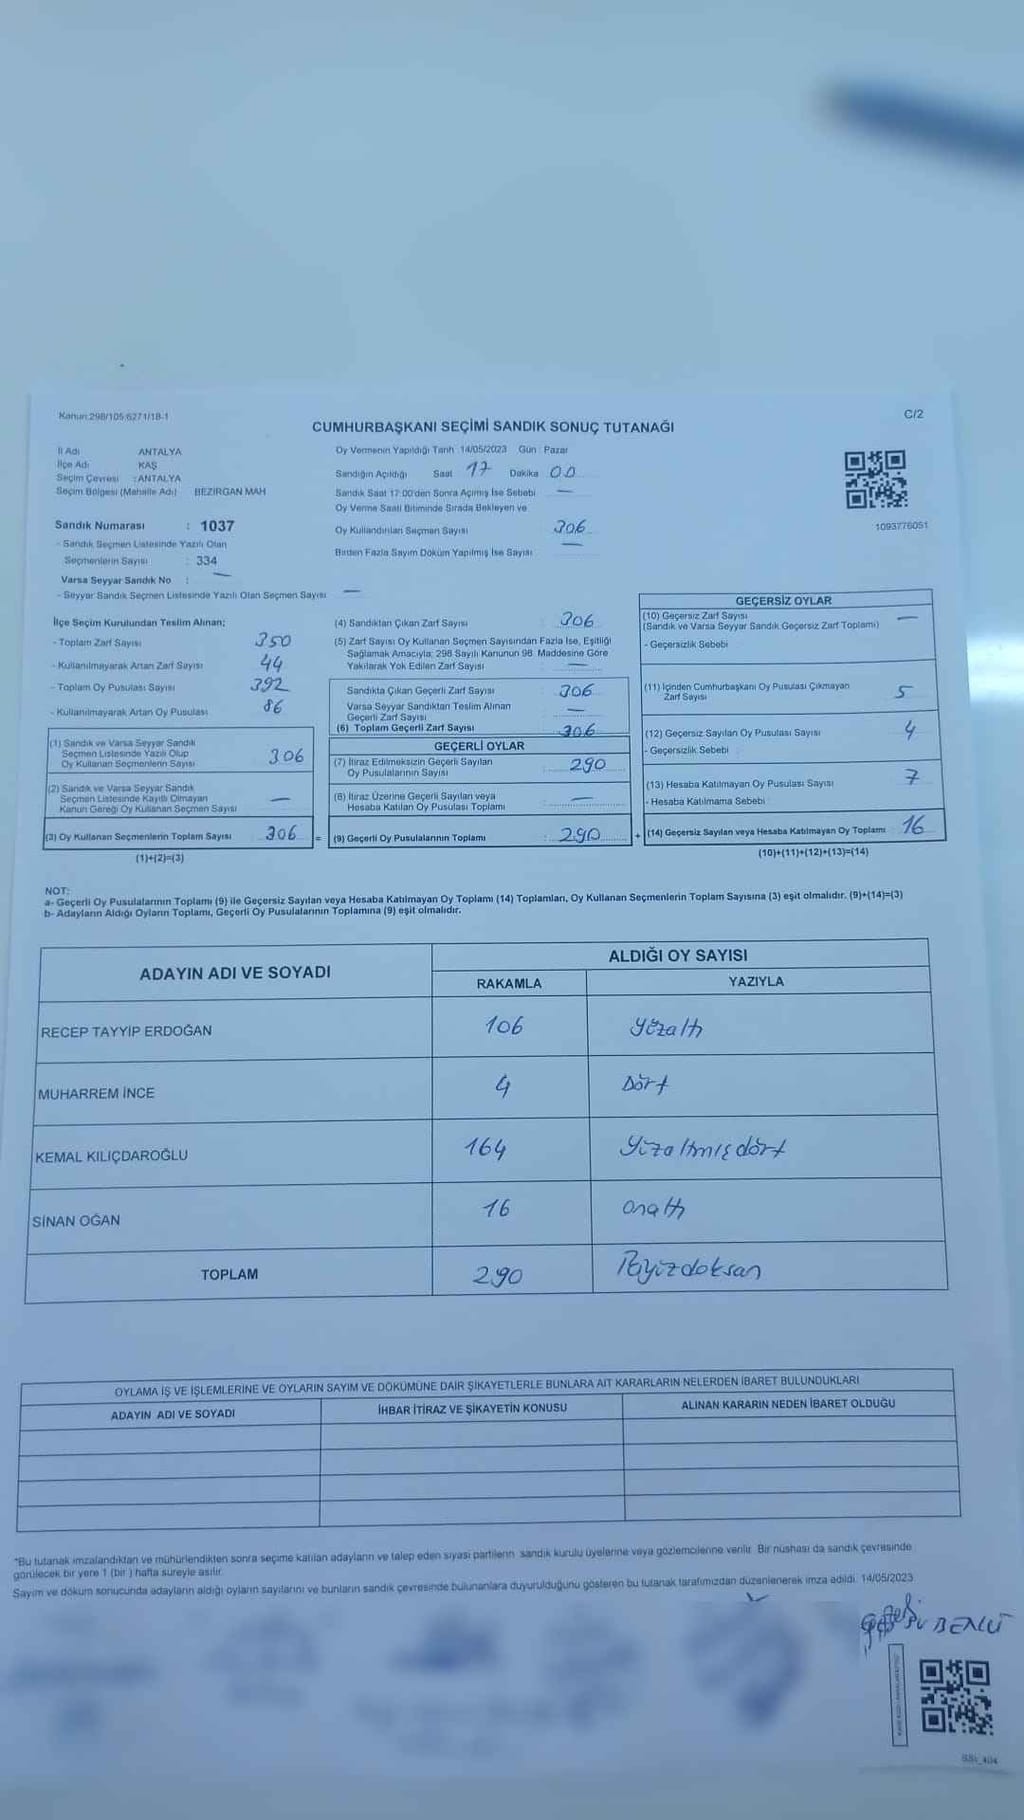 Kanun:298/105;6271/18-1
C/2
CUMHURBAŞKANI SEÇİMİ SANDIK SONUÇ TUTANAĞI
İl Adı ANTALYA
İlçe Adı KAŞ
Seçim Çevresi : ANTALYA
Seçim Bölgesi (Mahalle Adı) BEZİRGAN MAH
Sandık Numarası : 1037
- Sandık Seçmen Listesinde Yazılı Olan
Seçmenlerin Sayısı : 334
Varsa Seyyar Sandık No : —
- Seyyar Sandık Seçmen Listesinde Yazılı Olan Seçmen Sayısı —
Oy Vermenin Yapıldığı Tarih : 14/05/2023 Gün : Pazar
Sandığın Açıldığı Saat 17 Dakika 00
Sandık Saat 17:00'den Sonra Açılmış İse Sebebi —
Oy Verme Saati Bitiminde Sırada Bekleyen ve
Oy Kullandırılan Seçmen Sayısı 306
Birden Fazla Sayım Döküm Yapılmış İse Sayısı —
1093776051
İlçe Seçim Kurulundan Teslim Alınan;
- Toplam Zarf Sayısı 350
- Kullanılmayarak Artan Zarf Sayısı 44
- Toplam Oy Pusulası Sayısı 392
- Kullanılmayarak Artan Oy Pusulası 86
(1) Sandık ve Varsa Seyyar Sandık
Seçmen Listesinde Yazılı Olup
Oy Kullanan Seçmenlerin Sayısı 306
(2) Sandık ve Varsa Seyyar Sandık
Seçmen Listesinde Kayıtlı Olmayan
Kanun Gereği Oy Kullanan Seçmen Sayısı —
(3) Oy Kullanan Seçmenlerin Toplam Sayısı 306 =
(1)+(2)=(3)
(4) Sandıktan Çıkan Zarf Sayısı : 306
(5) Zarf Sayısı Oy Kullanan Seçmen Sayısından Fazla İse, Eşitliği
Sağlamak Amacıyla; 298 Sayılı Kanunun 98. Maddesine Göre
Yakılarak Yok Edilen Zarf Sayısı : —
Sandıkta Çıkan Geçerli Zarf Sayısı : 306
Varsa Seyyar Sandıktan Teslim Alınan
Geçerli Zarf Sayısı —
(6) Toplam Geçerli Zarf Sayısı 306
GEÇERLİ OYLAR
(7) İtiraz Edilmeksizin Geçerli Sayılan
Oy Pusulalarının Sayısı : 290
(8) İtiraz Üzerine Geçerli Sayılan veya
Hesaba Katılan Oy Pusulası Toplamı : —
(9) Geçerli Oy Pusulalarının Toplamı : 290 +
GEÇERSİZ OYLAR
(10) Geçersiz Zarf Sayısı
(Sandık ve Varsa Seyyar Sandık Geçersiz Zarf Toplamı) —
- Geçersizlik Sebebi
(11) İçinden Cumhurbaşkanı Oy Pusulası Çıkmayan
Zarf Sayısı 5
(12) Geçersiz Sayılan Oy Pusulası Sayısı 4
- Geçersizlik Sebebi
(13) Hesaba Katılmayan Oy Pusulası Sayısı 7
- Hesaba Katılmama Sebebi
(14) Geçersiz Sayılan veya Hesaba Katılmayan Oy Toplamı 16
(10)+(11)+(12)+(13)=(14)
NOT:
a- Geçerli Oy Pusulalarının Toplamı (9) ile Geçersiz Sayılan veya Hesaba Katılmayan Oy Toplamı (14) Toplamları, Oy Kullanan Seçmenlerin Toplam Sayısına (3) eşit olmalıdır. (9)+(14)=(3)
b- Adayların Aldığı Oyların Toplamı, Geçerli Oy Pusulalarının Toplamına (9) eşit olmalıdır.
ADAYIN ADI VE SOYADI
ALDIĞI OY SAYISI
RAKAMLA YAZIYLA
RECEP TAYYİP ERDOĞAN 106 yüzaltı
MUHARREM İNCE 4 Dört
KEMAL KILIÇDAROĞLU 164 yüzaltmışdört
SİNAN OĞAN 16 onaltı
TOPLAM 290 İkiyüzdoksan
OYLAMA İŞ VE İŞLEMLERİNE VE OYLARIN SAYIM VE DÖKÜMÜNE DAİR ŞİKAYETLERLE BUNLARA AİT KARARLARIN NELERDEN İBARET BULUNDUKLARI
ADAYIN ADI VE SOYADI İHBAR İTİRAZ VE ŞİKAYETİN KONUSU ALINAN KARARIN NEDEN İBARET OLDUĞU
*Bu tutanak imzalandıktan ve mühürlendikten sonra seçime katılan adayların ve talep eden siyasi partilerin sandık kurulu üyelerine veya gözlemcilerine verilir. Bir nüshası da sandık çevresinde
görülecek bir yere 1 (bir) hafta süreyle asılır.
Sayım ve döküm sonucunda adayların aldığı oyların sayılarını ve bunların sandık çevresinde bulunanlara duyurulduğunu gösteren bu tutanak tarafımızdan düzenlenerek imza edildi. 14/05/2023
BENLİ